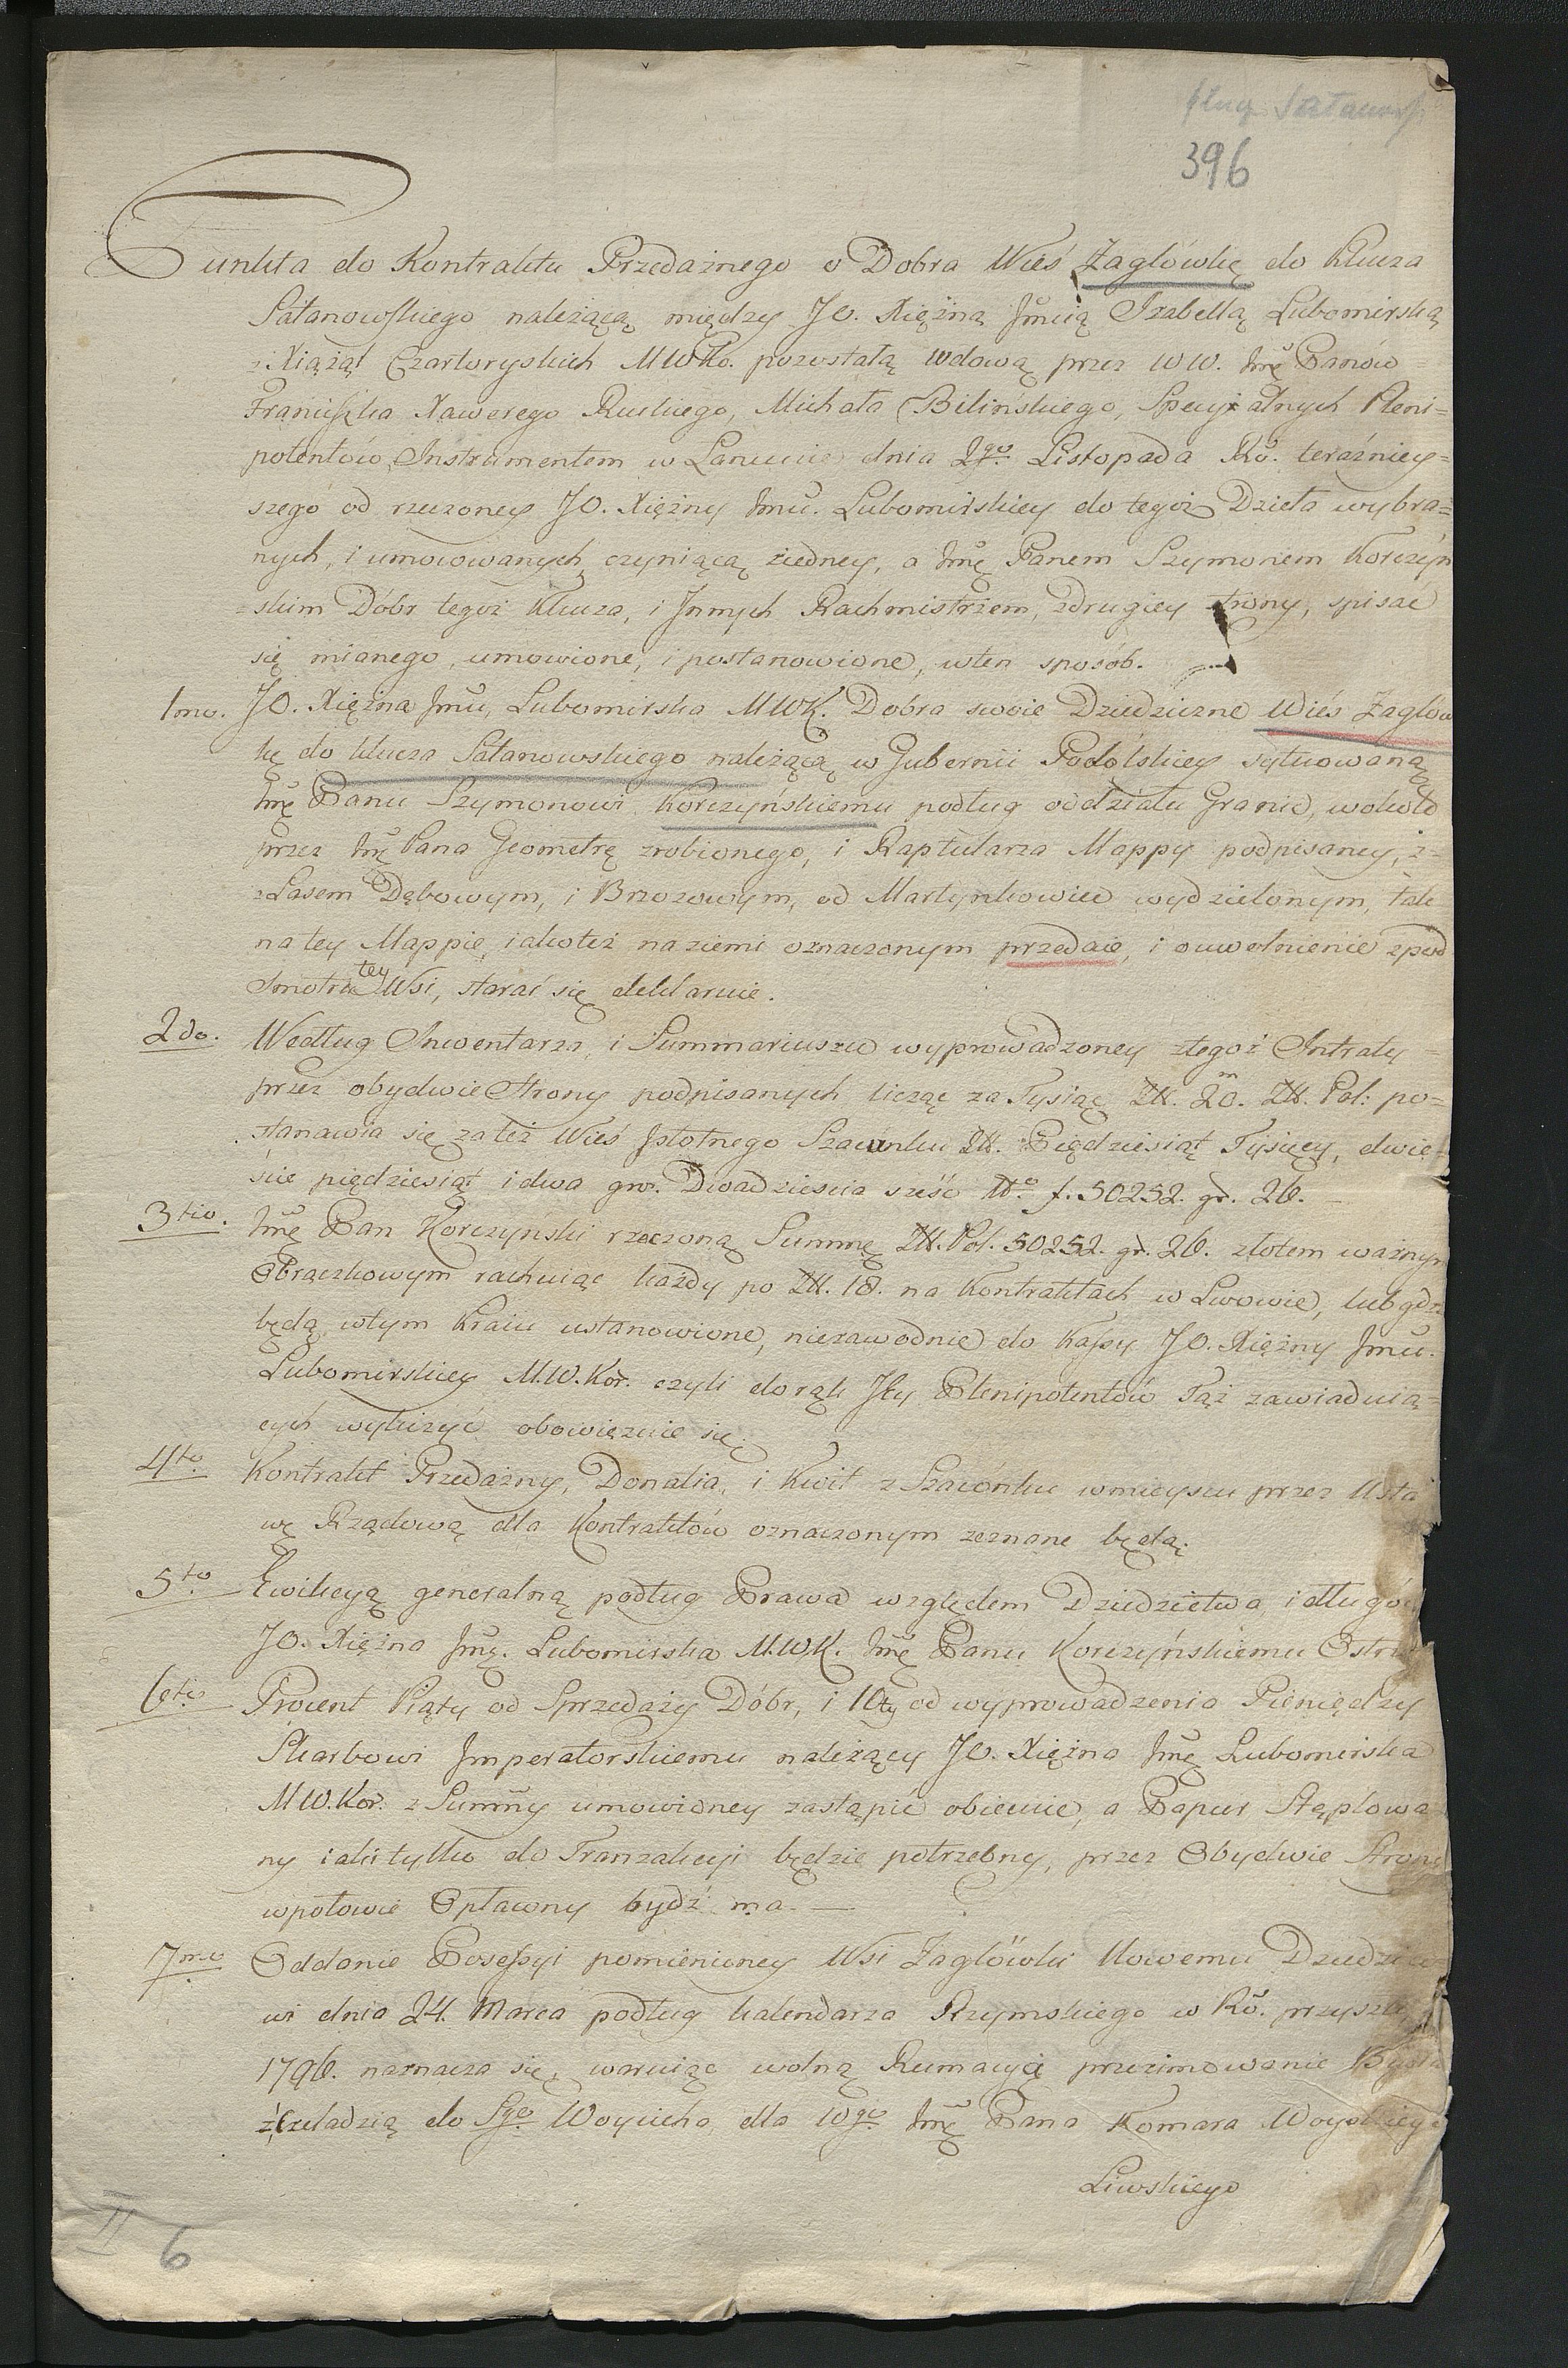 396
Punkta do Kontraktu Przedażnego o Dobra Wieś Zaglówkę do Klucza
Satanowskiego należącą między JO. Xiężną Jmcią Izabellą Lubomirską
z Xiążąt Czartoryskich MWKo. pozostałą wdową przez WW. Jmć Panów
Franciszka Xawerego Ruckiego, Michała Bilińskiego, Specyialnych Pleni=
potentów, Instrumentem w Lancucie dnia 2go. Listopada Ro. teraźniey=
szego od rzeczoney JO. Xiężny Jmci. Lubomirskiey do tegoż Dzieła wybra=
nych, i umocowanych czyniącą ziedney, a Jmć Panem Szymonem Korczyń
skim Dóbr tegoż Klucza, i Innych Rachmistrzem, zdrugiey strony, spisać
się mianego, umowione, i postanowione, wten sposób.
1mo. JO. Xiężna Jmci, Lubomirska MWK. Dobra swoie Dziedziczne Wieś Zaglów
kę do klucza Satanowskiego należącą w Gubernii Podolskiey sytuowaną
Jmć Panu Szymonowi Korczyńskiemu podług oddziału Granic, wokoło
przez Jmć Pana Geometrę zrobionego, i Raptularza Mappy podpisaney, z=
z Lasem Dębowym, i Brzozowym, od Martynkowiec wydzielonym, tak
na tey Mappie, iakoteż na ziemi oznaczonym przedaie, i ouwolnienie zpod
Smotru tey Wsi, starać się deklaruie.
2do. Według Inwentarza, i Summariuszu wyprowadzoney ztegoż Intraty =
przez obydwie Strony podpisanych licząc za Tysiąc Zł. 20.m Zł. Pol: po=
stanawia się za też Wieś Istotnego Szacunku Zł. Pięćdziesiąt Tysięcy, dwie=
ście pięćdziesiąt i dwa gro. Dwadzieścia sześć No. f. 50252. gr. 26.
3tio. Jmć Pan Korczyński rzeczoną Summę Zł. Pol. 50252. gr. 26. złotem ważnym
Obrączkowym rachuiąc każdy po Zł. 18. na Kontraktach w Lwowie, lub gdzie
będą wtym Kraiu ustanowione, niezawodnie do Kassy JO. Xiężny Jmci.
Lubomirskiey M.W.Kor. czyli do rąk Jey Plenipotentów Tąż zawiaduią=
cych wyliczyć obowięzuie się.
4to. Kontrakt Przedażny, Donatia, i Kwit z Szacunku wmieyscu przez Usta
wę Rządową dla Kontraktów oznaczonym zeznane będą.
5to. Ewikcyą generalną podług Prawa względem Dziedzictwa i długów
JO. Xiężna Jmć. Lubomirska M.W.K. Jmć Panu Korczyńskiemu Ostrze
6to. Procent Piąty od Sprzedaży Dóbr, i 10ty od wyprowadzenia Pieniędzy
Skarbowi Imperatorskiemu należący JO. Xiężna Jmć Lubomirska
M.W.Kor. z Summy umowioney zastąpić obiecuie, a Papier Stęplowa
ny iaki tylko do Tranzakcyi będzie potrzebny, przez Obydwie Strony
wpołowie Opłacony bydź ma.
7mo. Oddanie Possessyi pomienioney Wsi Zaglówki Nowemu Dziedzico
wi dnia 24. Marca podług kalendarza Rzymskiego w Ro. przyszłym
1796. naznacza się, waruiąc wolną Rumacyę przezimowanie Bydła
z Czeladzią do Sgo. Woyciecha, dla Wgo. Jmć Pana Komara Woyskiego
Liwskiego
II 6